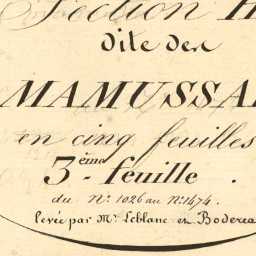 Section H
dite des
MAMUSSA
en cinq feuilles
3.ème feuille.
du N.º 1026 au N.º 1474.
levée par M.r Leblanc et Boderea